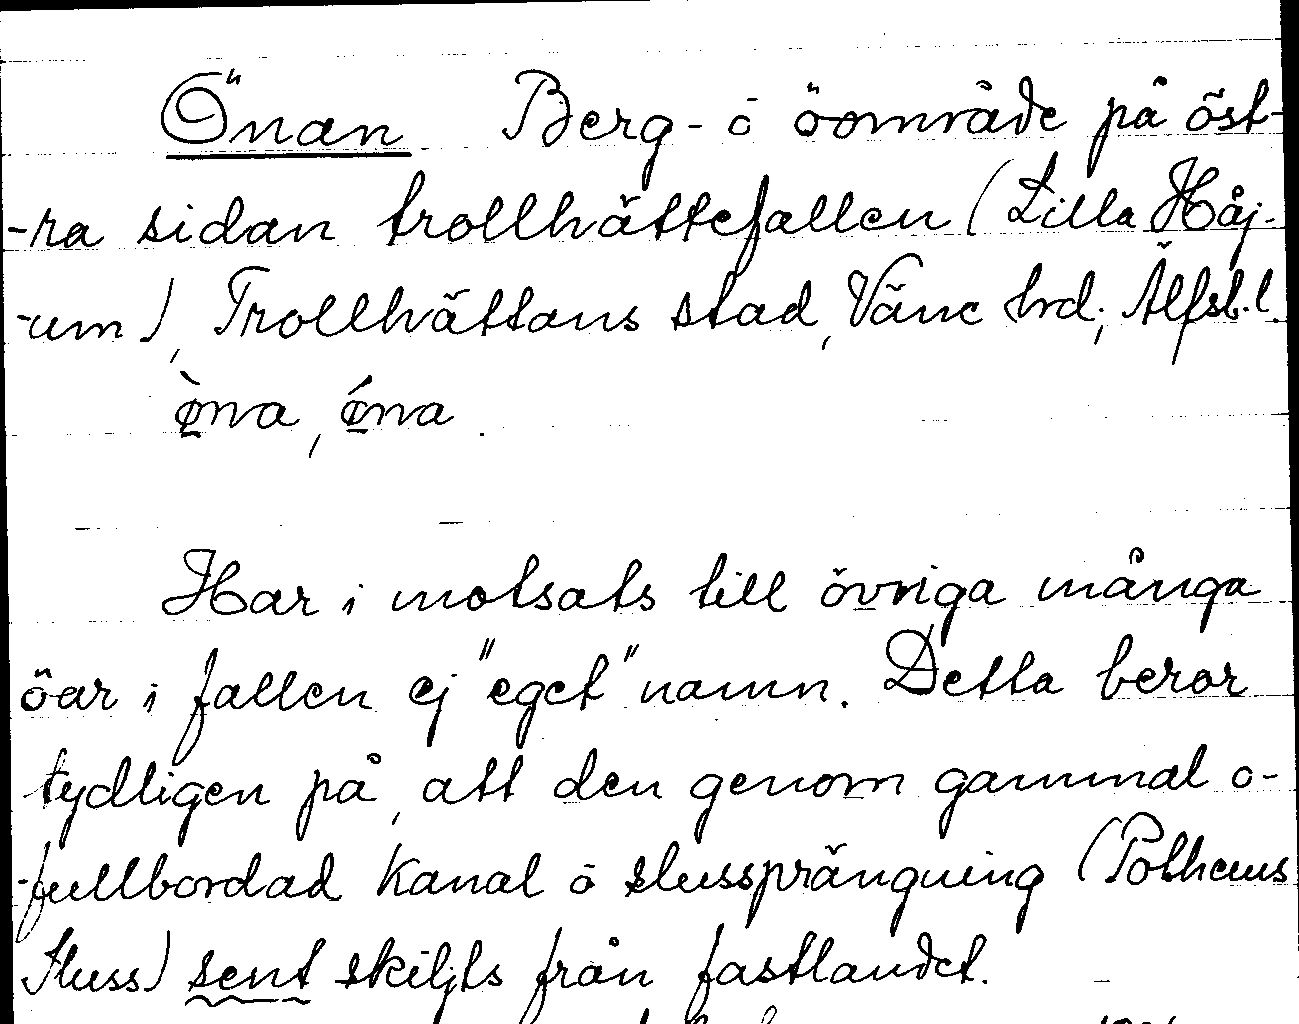 Önan Berg- o öområde på öst-
-ra sidan trollhättefallen (Lilla Håj-
-um), Trollhättans stad, Väne hd; Älfsb. l.
ø̀na, ǿna.
Har i motsats till övriga många
öar i fallen ej "eget" namn. Detta beror
tydligen på, att den genom gammal o-
-fullbordad kanal o slussprängning (Polhems
Sluss) sent skiljts från fastlandet.